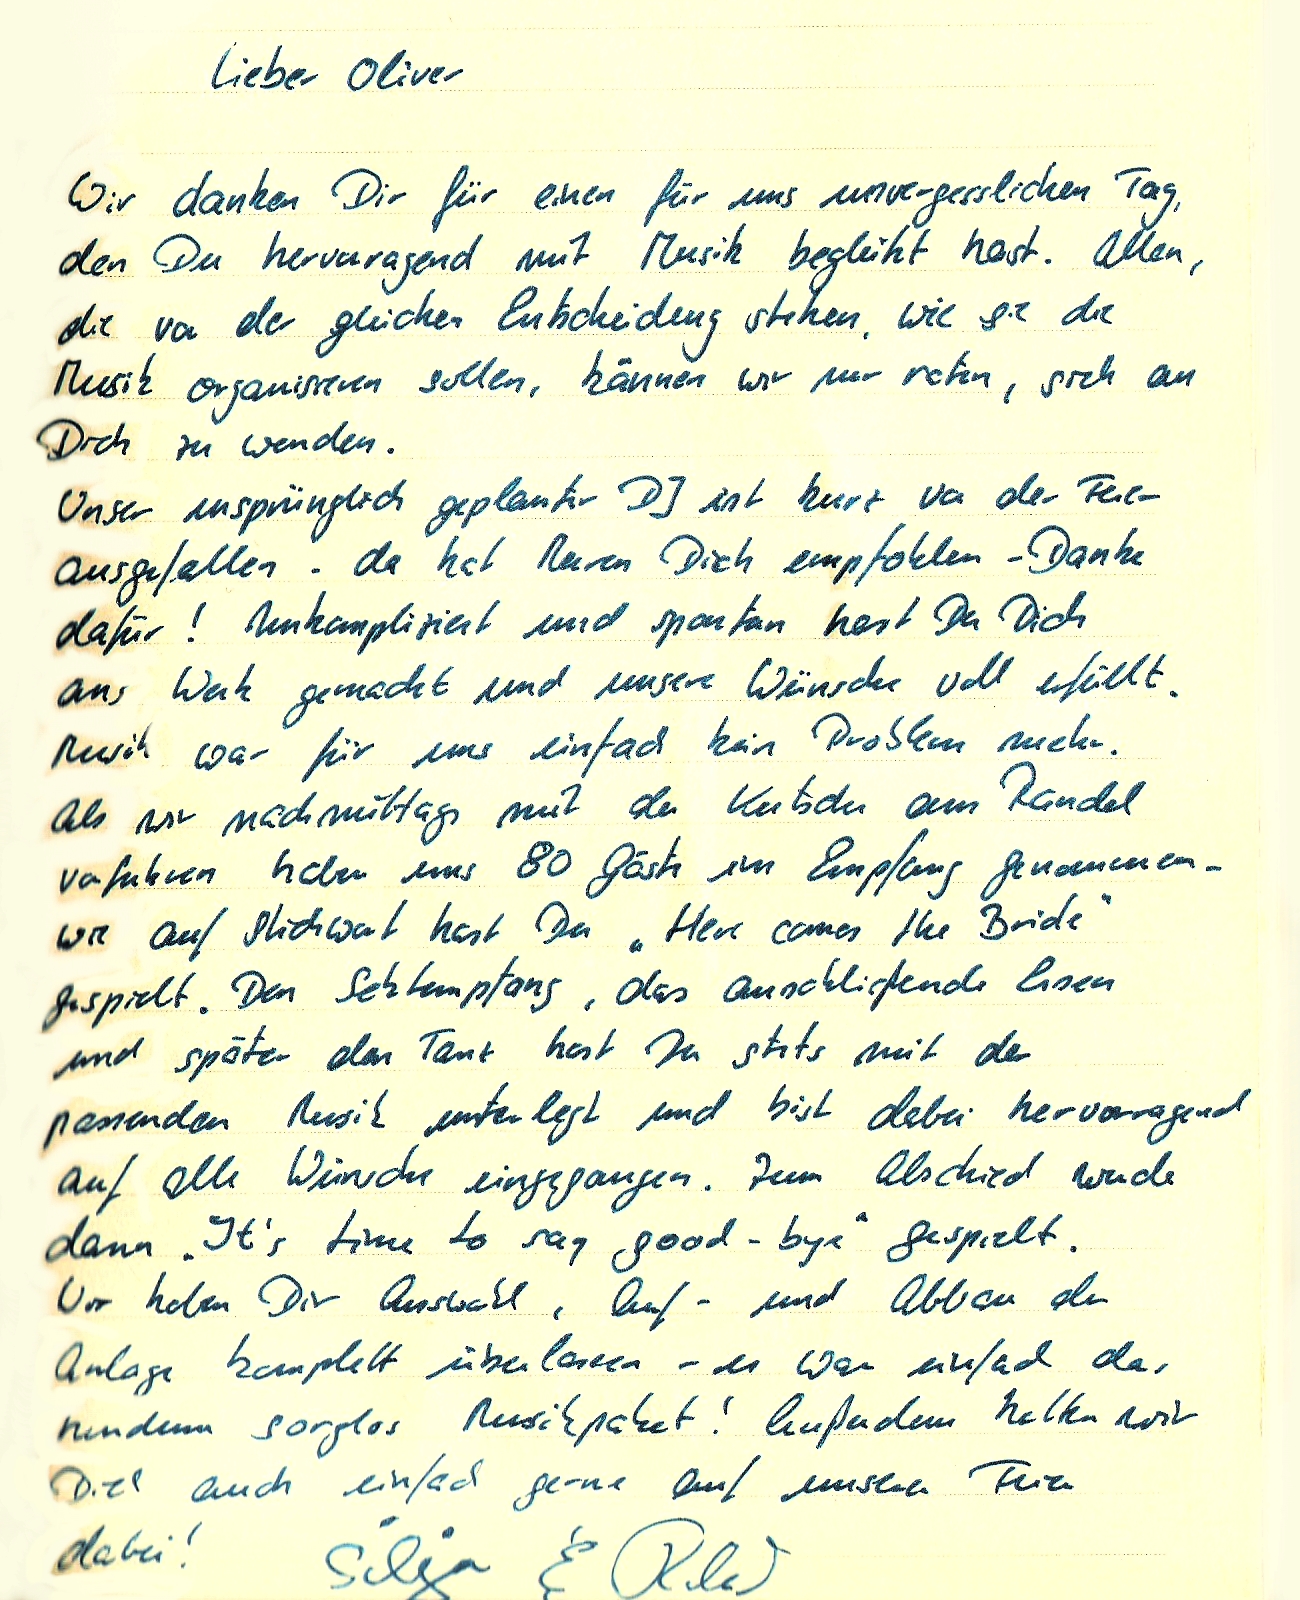 Lieber Oliver
Wir danken Dir für einen für uns unvergesslichen Tag,
den Du hervoragend mit Musik begleitet hast. Allen,
die vor der gleichen Entscheidung stehen, wie sie die
Musik organisieren sollen, können wir nur raten, sich an
Dich zu wenden.
Unser ursprünglich geplanter DJ ist kurz vor der Feier
ausgefallen - da hat Dich empfohlen - Danke
dafür! Unkompliziert und spontan hast Du Dich
ans Werk gemacht und unsere Wünsche voll erfüllt.
Musik war für uns einfach kein Problem mehr.
Als wir nachmittags mit der Kutsche am Kandel
vorfuhren haben uns 80 Gäste in Empfang genommen -
wie auf Stichwort hast Du „Here comes the Bride"
gespielt. Den Sektempfang, das anschließende Essen
und später den Tanz hast Du stets mit der
passenden Musik unterlegt und bist dabei hervorragend
auf alle Wünsche eingegangen. Zum Abschied wurde
dann „It's time to say good-bye" gespielt.
Wir haben Dir Auswahl, Auf- und Abbau der
Anlage komplett überlassen - es war einfach das
rundum sorglos Musikpaket! Außerdem hatten wir
Dich auch einfach gerne auf unserer Feier
dabei! Silja &